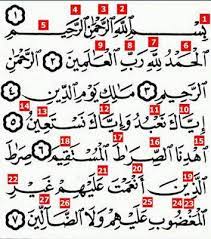 1 2 3 4 5
بِسْمِ اللَّهِ الرَّحْمَٰنِ الرَّحِيمِ ١
6 7 8 9
الْحَمْدُ لِلَّهِ رَبِّ الْعَالَمِينَ ٢ الرَّحْمَٰنِ
الرَّحِيمِ ٣ مَالِكِ يَوْمِ الدِّينِ ٤
10 11 12 13 14
إِيَّاكَ نَعْبُدُ وَإِيَّاكَ نَسْتَعِينُ ٥
15 16 17 18
اهْدِنَا الصِّرَاطَ الْمُسْتَقِيمَ ٦ صِرَاطَ
19 20 21 22
الَّذِينَ أَنْعَمْتَ عَلَيْهِمْ غَيْرِ
23 24 25 26 27
الْمَغْضُوبِ عَلَيْهِمْ وَلَا الضَّالِّينَ ٧